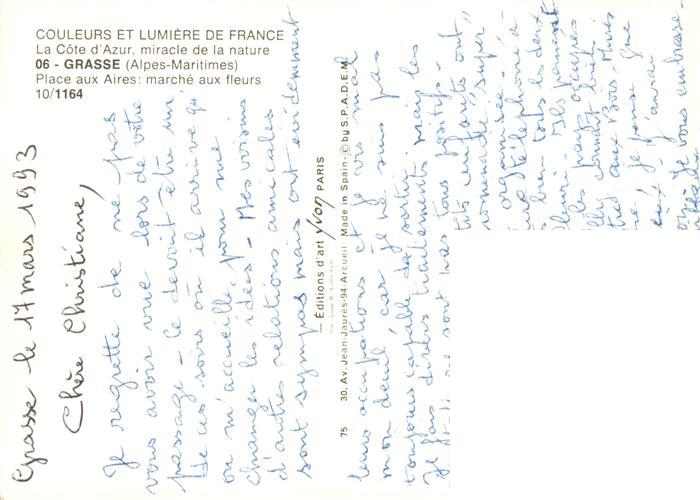 COULEURS ET LUMIÈRE DE FRANCE
La Côte d'Azur, miracle de la nature
06 - GRASSE (Alpes-Maritimes)
Place aux Aires: marché aux fleurs
10/1164
Grasse le 17 mars 1993
Chère Christiane,
Je regrette de ne pas
vous avoir vue lors de votre
passage - Ce devait être un
de ces soirs où il arrive qu'
on m'accueille, pour me
changer les idées - Mes voisins
d'autres relations amicales
sont sympas mais ont évidemment
— Éditions d'art yvon PARIS
75 30, Av. Jean-Jaurès-94-Arcueil Made in Spain - © by S.P.A.D.E.M.
leurs occupations et je vis mal
mon deuil, car je ne suis pas
toujours capable de sortir.
Je fais divers traitements mais les
ne sont pas tous positifs -
enfants ont
promenade "super
organisée -
téléphoné à
bien tous les deux
fleuri - Ils pensent
les pays occupés
connaît bien
aux Bois Murés
je pense que
j'aurai
je vous embrasse -